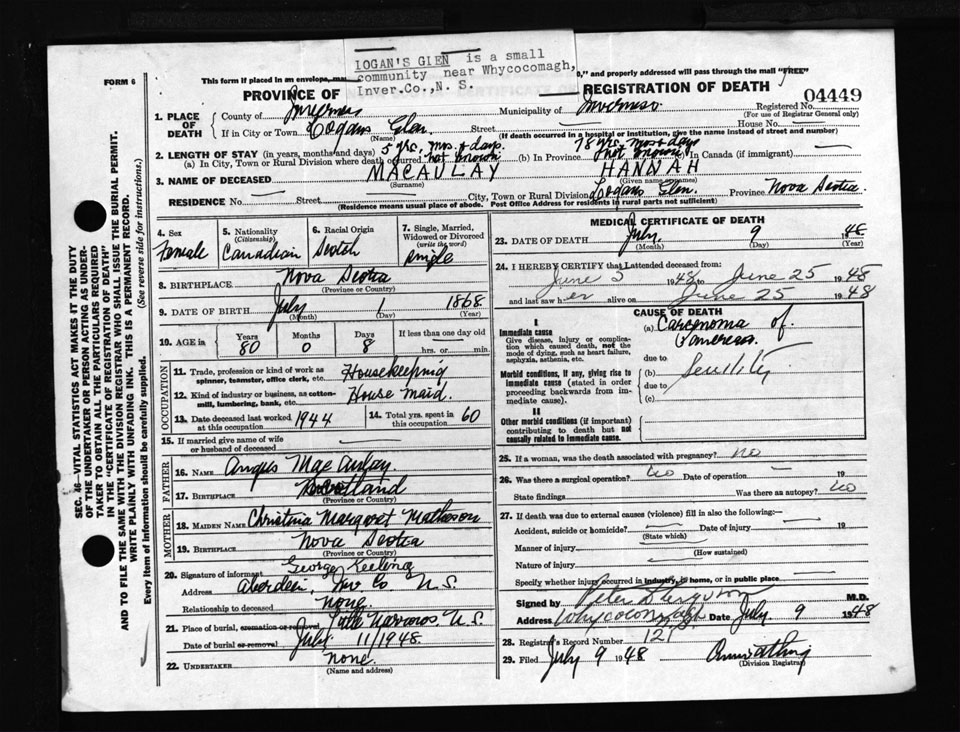 LOGAN'S GLEN is a small
community near Whycocomagh,
Inver.Co.,N. S.
FORM 6
This form if placed in an envelope, ," and properly addressed will pass through the mail "FREE"
PROVINCE OF REGISTRATION OF DEATH
04449
1. PLACE OF DEATH
County of Inverness Municipality of Inverness Registered No.
(For use of Registrar General only)
If in City or Town Logans Glen. Street House No.
(Name) (If death occurred in a hospital or institution, give the name instead of street and number)
2. LENGTH OF STAY (in years, months and days) 5 yrs. mos. & days. 78 yrs. mos & days
(a) In City, Town or Rural Division where death occurred not known (b) In Province not known (c) In Canada (if immigrant)
3. NAME OF DECEASED MACAULAY HANNAH
(Surname) (Given name or names)
RESIDENCE No. Street City, Town or Rural Division Logans Glen. Province Nova Scotia
(Residence means usual place of abode. Post Office Address for residents in rural parts not sufficient)
4. Sex
Female
5. Nationality
(Citizenship)
Canadian
6. Racial Origin
Scotch
7. Single, Married,
Widowed or Divorced
(write the word)
single
8. BIRTHPLACE Nova Scotia
(Province or Country)
9. DATE OF BIRTH July 1 1868
(Month) (Day) (Year)
10. AGE in Years Months Days If less than one day old
80 0 8 hrs. or min.
OCCUPATION
11. Trade, profession or kind of work as
spinner, teamster, office clerk, etc. Housekeeping
12. Kind of industry or business, as cotton-
mill, lumbering, bank, etc. House Maid.
13. Date deceased last worked
at this occupation 1944
14. Total yrs. spent in
this occupation 60
15. If married give name of wife
or husband of deceased
FATHER
16. NAME Angus MacAulay.
17. BIRTHPLACE Scotland
(Province or Country)
MOTHER
18. MAIDEN NAME Christina Margaret Matheson
19. BIRTHPLACE Nova Scotia
(Province or Country)
20. Signature of informant George Keeling
Address Aberdeen, Inv Co N.S.
Relationship to deceased none.
21. Place of burial, cremation or removal Little Narrows. N.S
Date of burial or removal July 11/1948.
22. UNDERTAKER none.
(Name and address)
MEDICAL CERTIFICATE OF DEATH
23. DATE OF DEATH July. 9 48
(Month) (Day) (Year)
24. I HEREBY CERTIFY that I attended deceased from:
June 5 1948 to June 25 1948
and last saw her alive on June 25 1948
CAUSE OF DEATH
I
Immediate cause
Give disease, injury or complica-
tion which caused death, not the
mode of dying, such as heart failure,
asphyxia, asthenia, etc.
(a) Carcinoma of
Pancreas.
due to
Morbid conditions, if any, giving rise to
immediate cause (stated in order
proceeding backwards from im-
mediate cause).
(b) Senility
due to
(c)
II
Other morbid conditions (if important)
contributing to death but not
causally related to immediate cause.
25. If a woman, was the death associated with pregnancy? no
26. Was there surgical operation? no Date of operation 19
State findings Was there an autopsy? no
27. If death was due to external causes (violence) fill in also the following:—
Accident, suicide or homicide? Date of injury 19
(State which)
Manner of injury
(How sustained)
Nature of injury
Specify whether injury occurred in industry, in home, or in public place
Signed by M.D.
Address Whycocomagh Date July 9 1948
28. Registrar's Record Number 121
29. Filed July 9 1948
(Division Registrar)
SEC. 46—VITAL STATISTICS ACT MAKES IT THE DUTY
OF THE UNDERTAKER OR PERSON ACTING AS UNDER-
TAKER TO OBTAIN ALL THE PARTICULARS REQUIRED
IN THE "CERTIFICATE OF REGISTRATION OF DEATH"
AND TO FILE THE SAME WITH THE DIVISION REGISTRAR WHO SHALL ISSUE THE BURIAL PERMIT.
WRITE PLAINLY WITH UNFADING INK. THIS IS A PERMANENT RECORD.
Every item of Information should be carefully supplied. (See reverse side for instructions.)